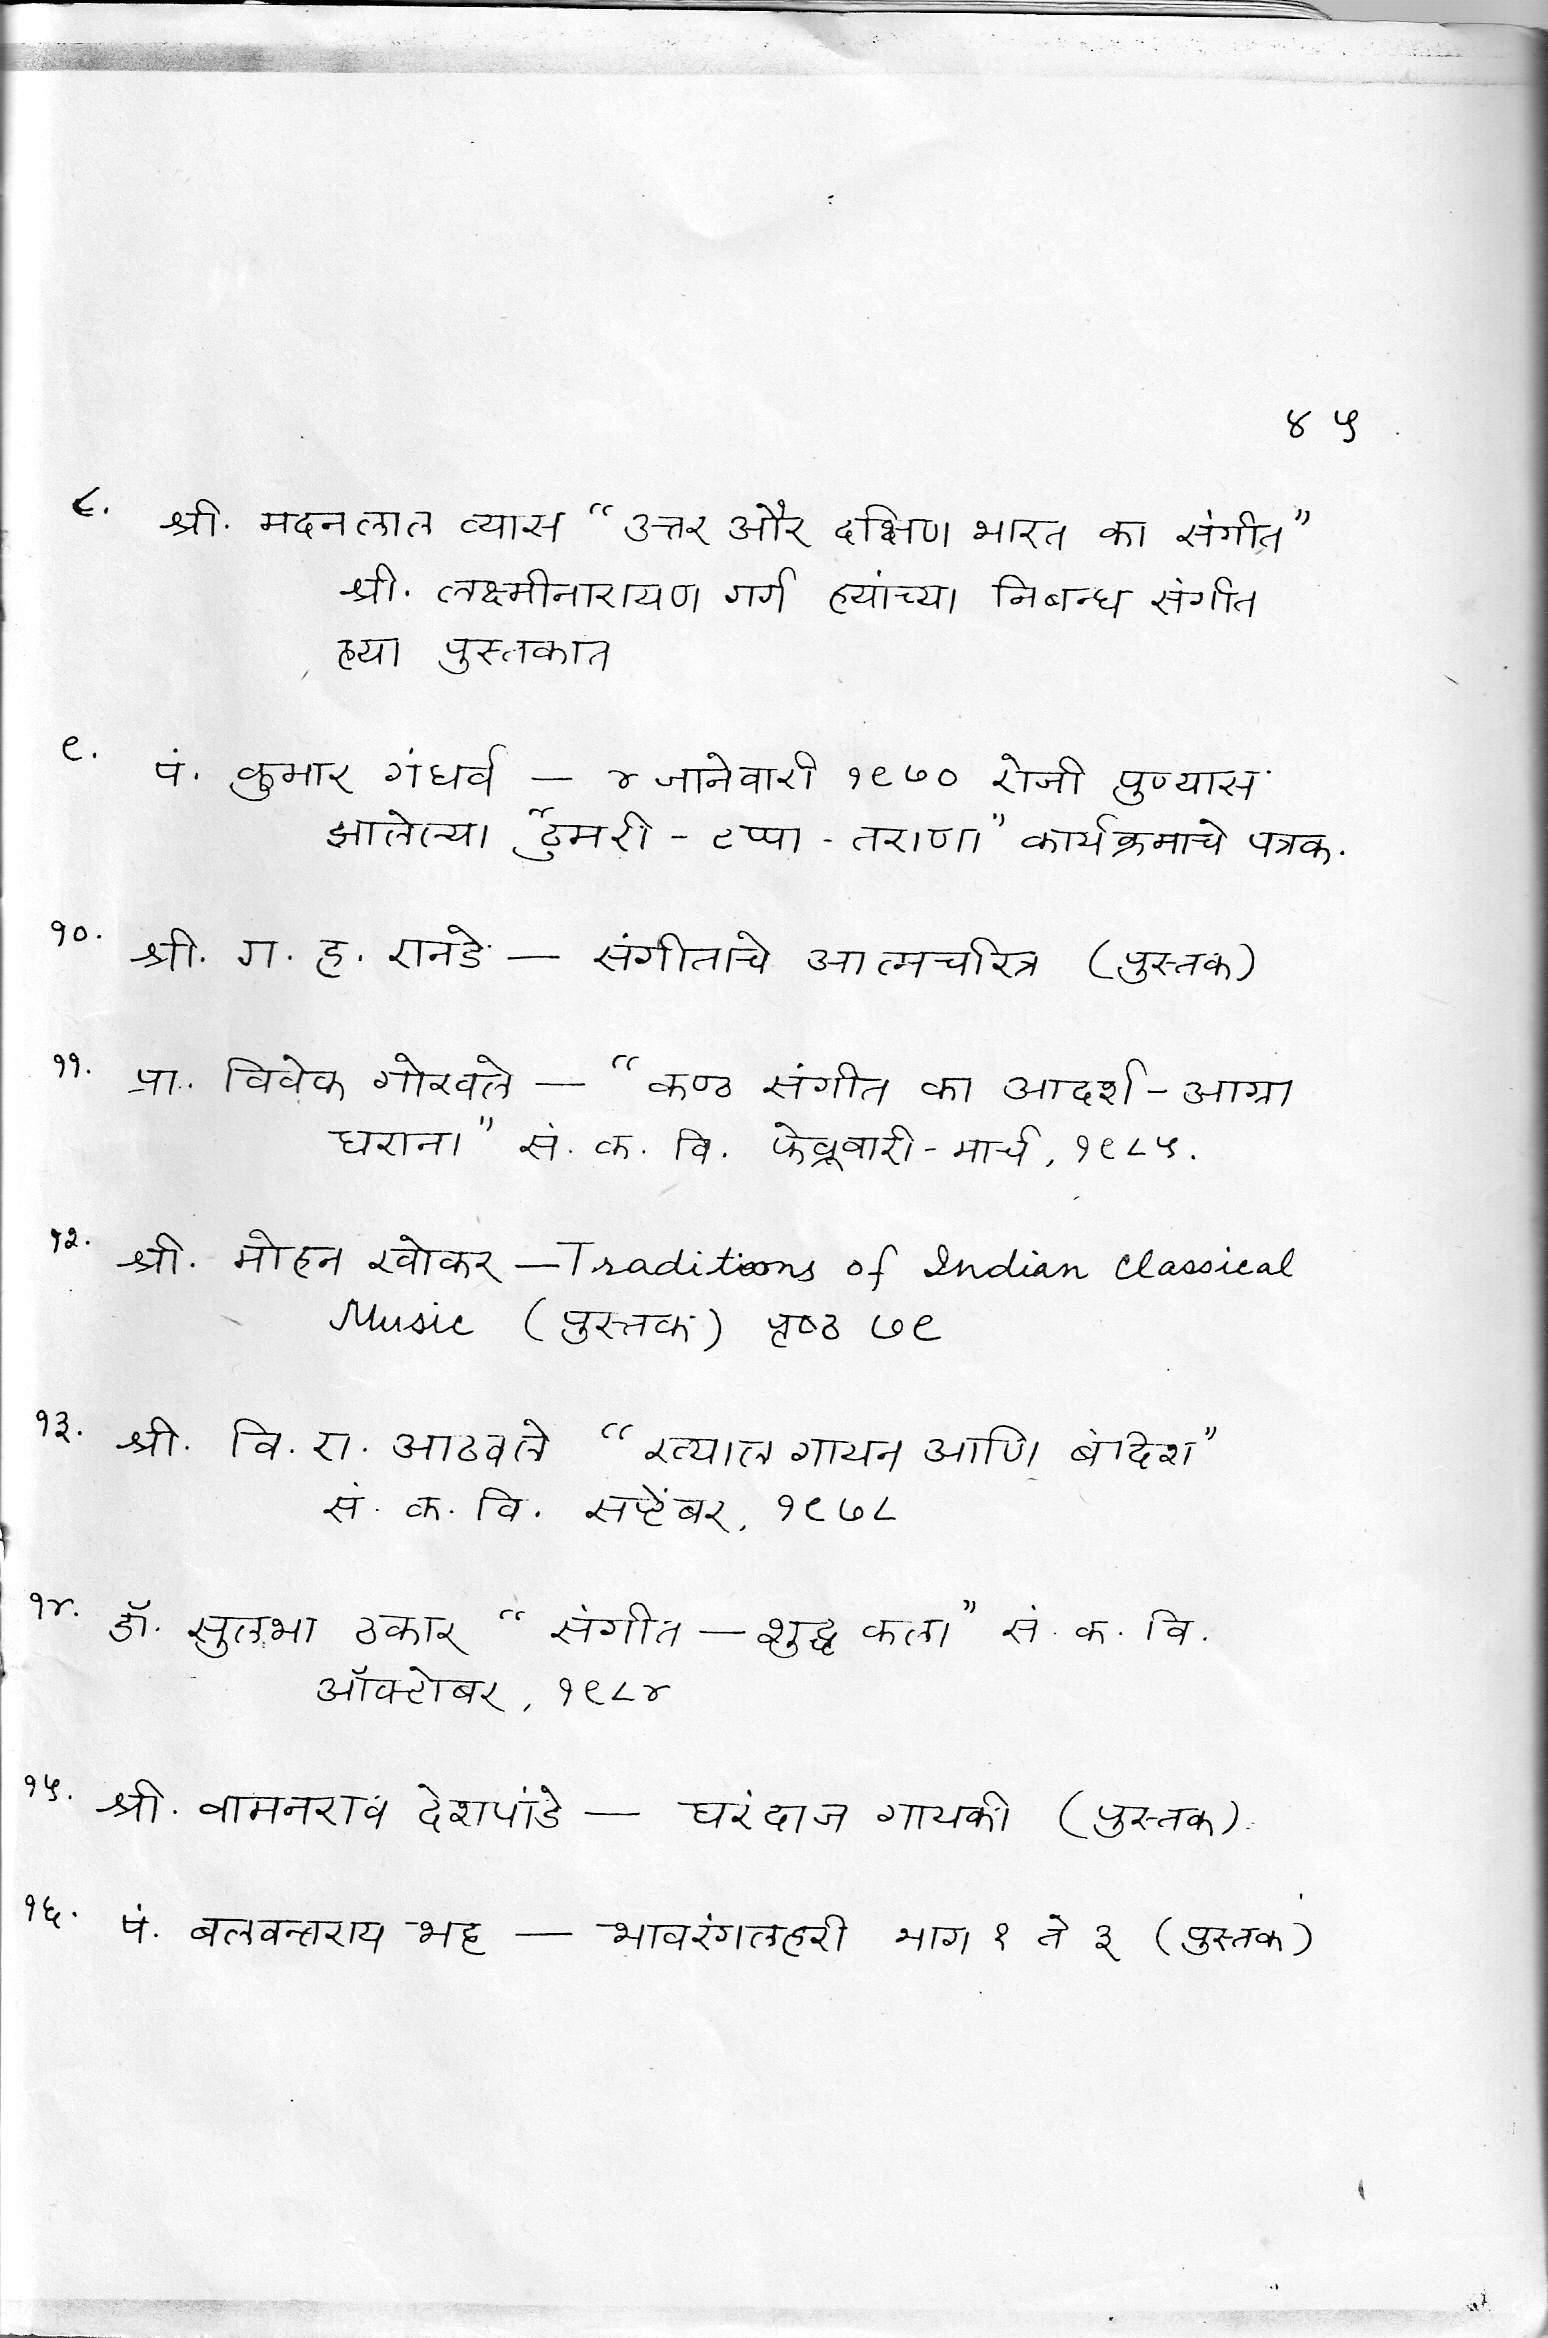 ४५
८. श्री. मदनलाल व्यास “उत्तर और दक्षिण भारत का संगीत”
श्री. लक्ष्मीनारायण गर्ग ह्यांच्या निबन्ध संगीत
ह्या पुस्तकात
९. पं. कुमार गंधर्व — ४ जानेवारी १९७० रोजी पुण्यास
झालेल्या “ठुमरी - टप्पा - तराणा” कार्यक्रमाचे पत्रक.
१०. श्री. ग. ह. रानडे — संगीताचे आत्मचरित्र (पुस्तक)
११. प्रा. विवेक गोखले — “कण्ठ संगीत का आदर्श - आग्रा
घराना” सं. क. वि. फेब्रूवारी - मार्च, १९८५.
१२. श्री. मोहन खोकर — Traditions of Indian Classical
Music (पुस्तक) पृष्ठ ७९
१३. श्री. वि. रा. आठवले “ख्याल गायन आणि बंदिश”
सं. क. वि. सप्टेंबर, १९७८
१४. डॉ. सुलभा ठकार “संगीत — शुद्ध कला” सं. क. वि.
ऑक्टोबर, १९८४
१५. श्री. वामनराव देशपांडे — घरंदाज गायकी (पुस्तक).
१६. पं. बलवन्तराय भट्ट — भावरंगलहरी भाग १ ते ३ (पुस्तक)